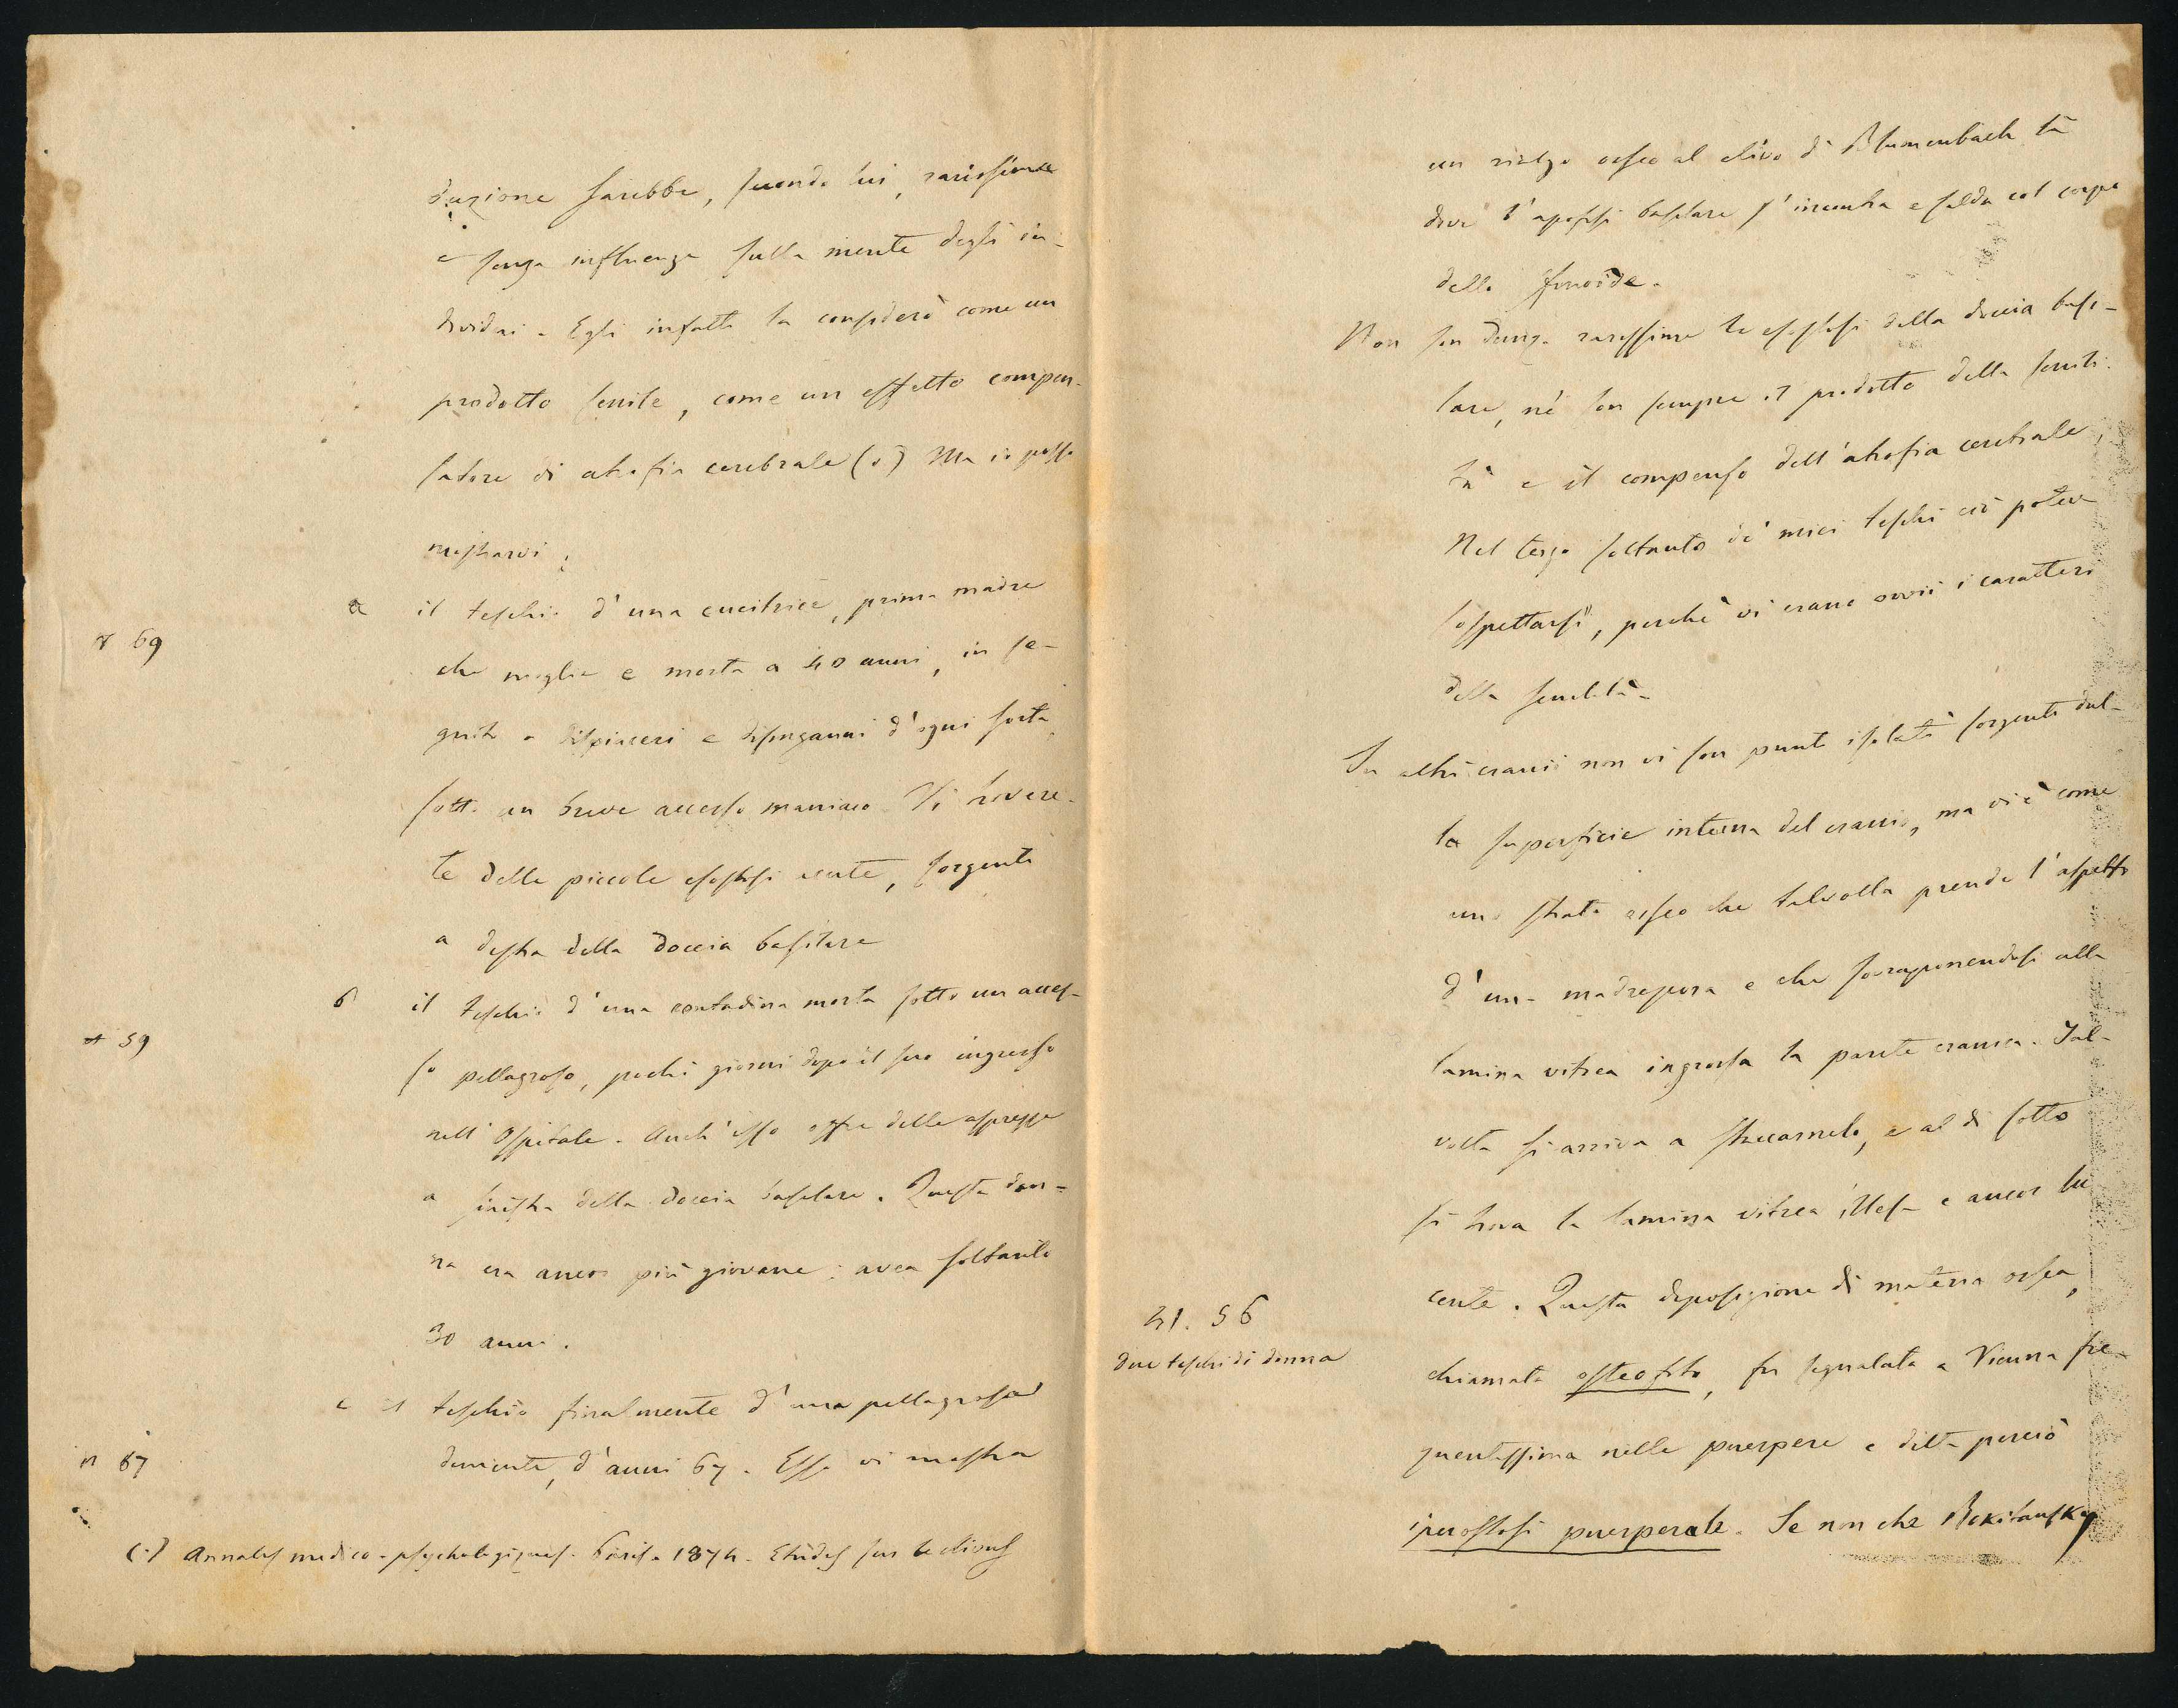 duzione sarebbe, secondo lui, rarissima
e senza influenza sulla mente degli in-
dividui. Egli infatti la considerò come un
prodotto senile, come un effetto compen-
satore di atrofia cerebrale (1) Ma io posso
mostrarvi:
a il teschio d'una cucitrice, prima madre
n 69
che moglie e morta a 40 anni, in se-
guito a dispiaceri e disinganni d'ogni sorta,
sotto un breve accesso maniaco. Vi trovere-
te delle piccole esostosi acute, sorgenti
a destra della doccia basilare
b il teschio d'una contadina morta sotto un acces-
n 59
so pellagroso, pochi giorni dopo il suo ingresso
nell'Ospitale. Anch'esso offre delle asprezze
a sinistra della doccia basilare. Questa don-
na era ancor più giovane: avea soltanto
30 anni.
c il teschio finalmente d'una pellagrosa
n 67
demente, d'anni 67. Esso vi mostra
(1) Annales medico-psychologiques. Paris. 1874. Etudes sur le clivus
un rialzo osseo al clivo di Blumenbach là
dove l'apofisi basilare s'incontra e salda col corpo
dello sfenoide.
Non son dunq. rarissime le esostosi della doccia basi-
lare, nè son sempre il prodotto della senili-
tà e il compenso dell'atrofia cerebrale,
Nel terzo soltanto de' miei teschi ciò potea
sospettarsi, perchè vi erano ovvii i caratteri
della senilità.
In altri cranii non vi son punte isolate sorgenti dal-
la superficie interna del cranio, ma vi è come
uno strato osseo che talvolta prende l'aspetto
d'una madrepora e che sovraponendosi alla
lamina vitrea ingrossa la parete cranica. Tal-
volta si arriva a staccarnelo, e al di sotto
si trova la lamina vitrea illesa e ancor lu
cente. Questa deposizione di materia ossea,
41. 56
due teschi di donna
chiamata osteofito, fu segnalata a Vienna fre-
quentissima nelle puerpere e detta perciò
iperostosi puerperale. Se non che Rokitansky